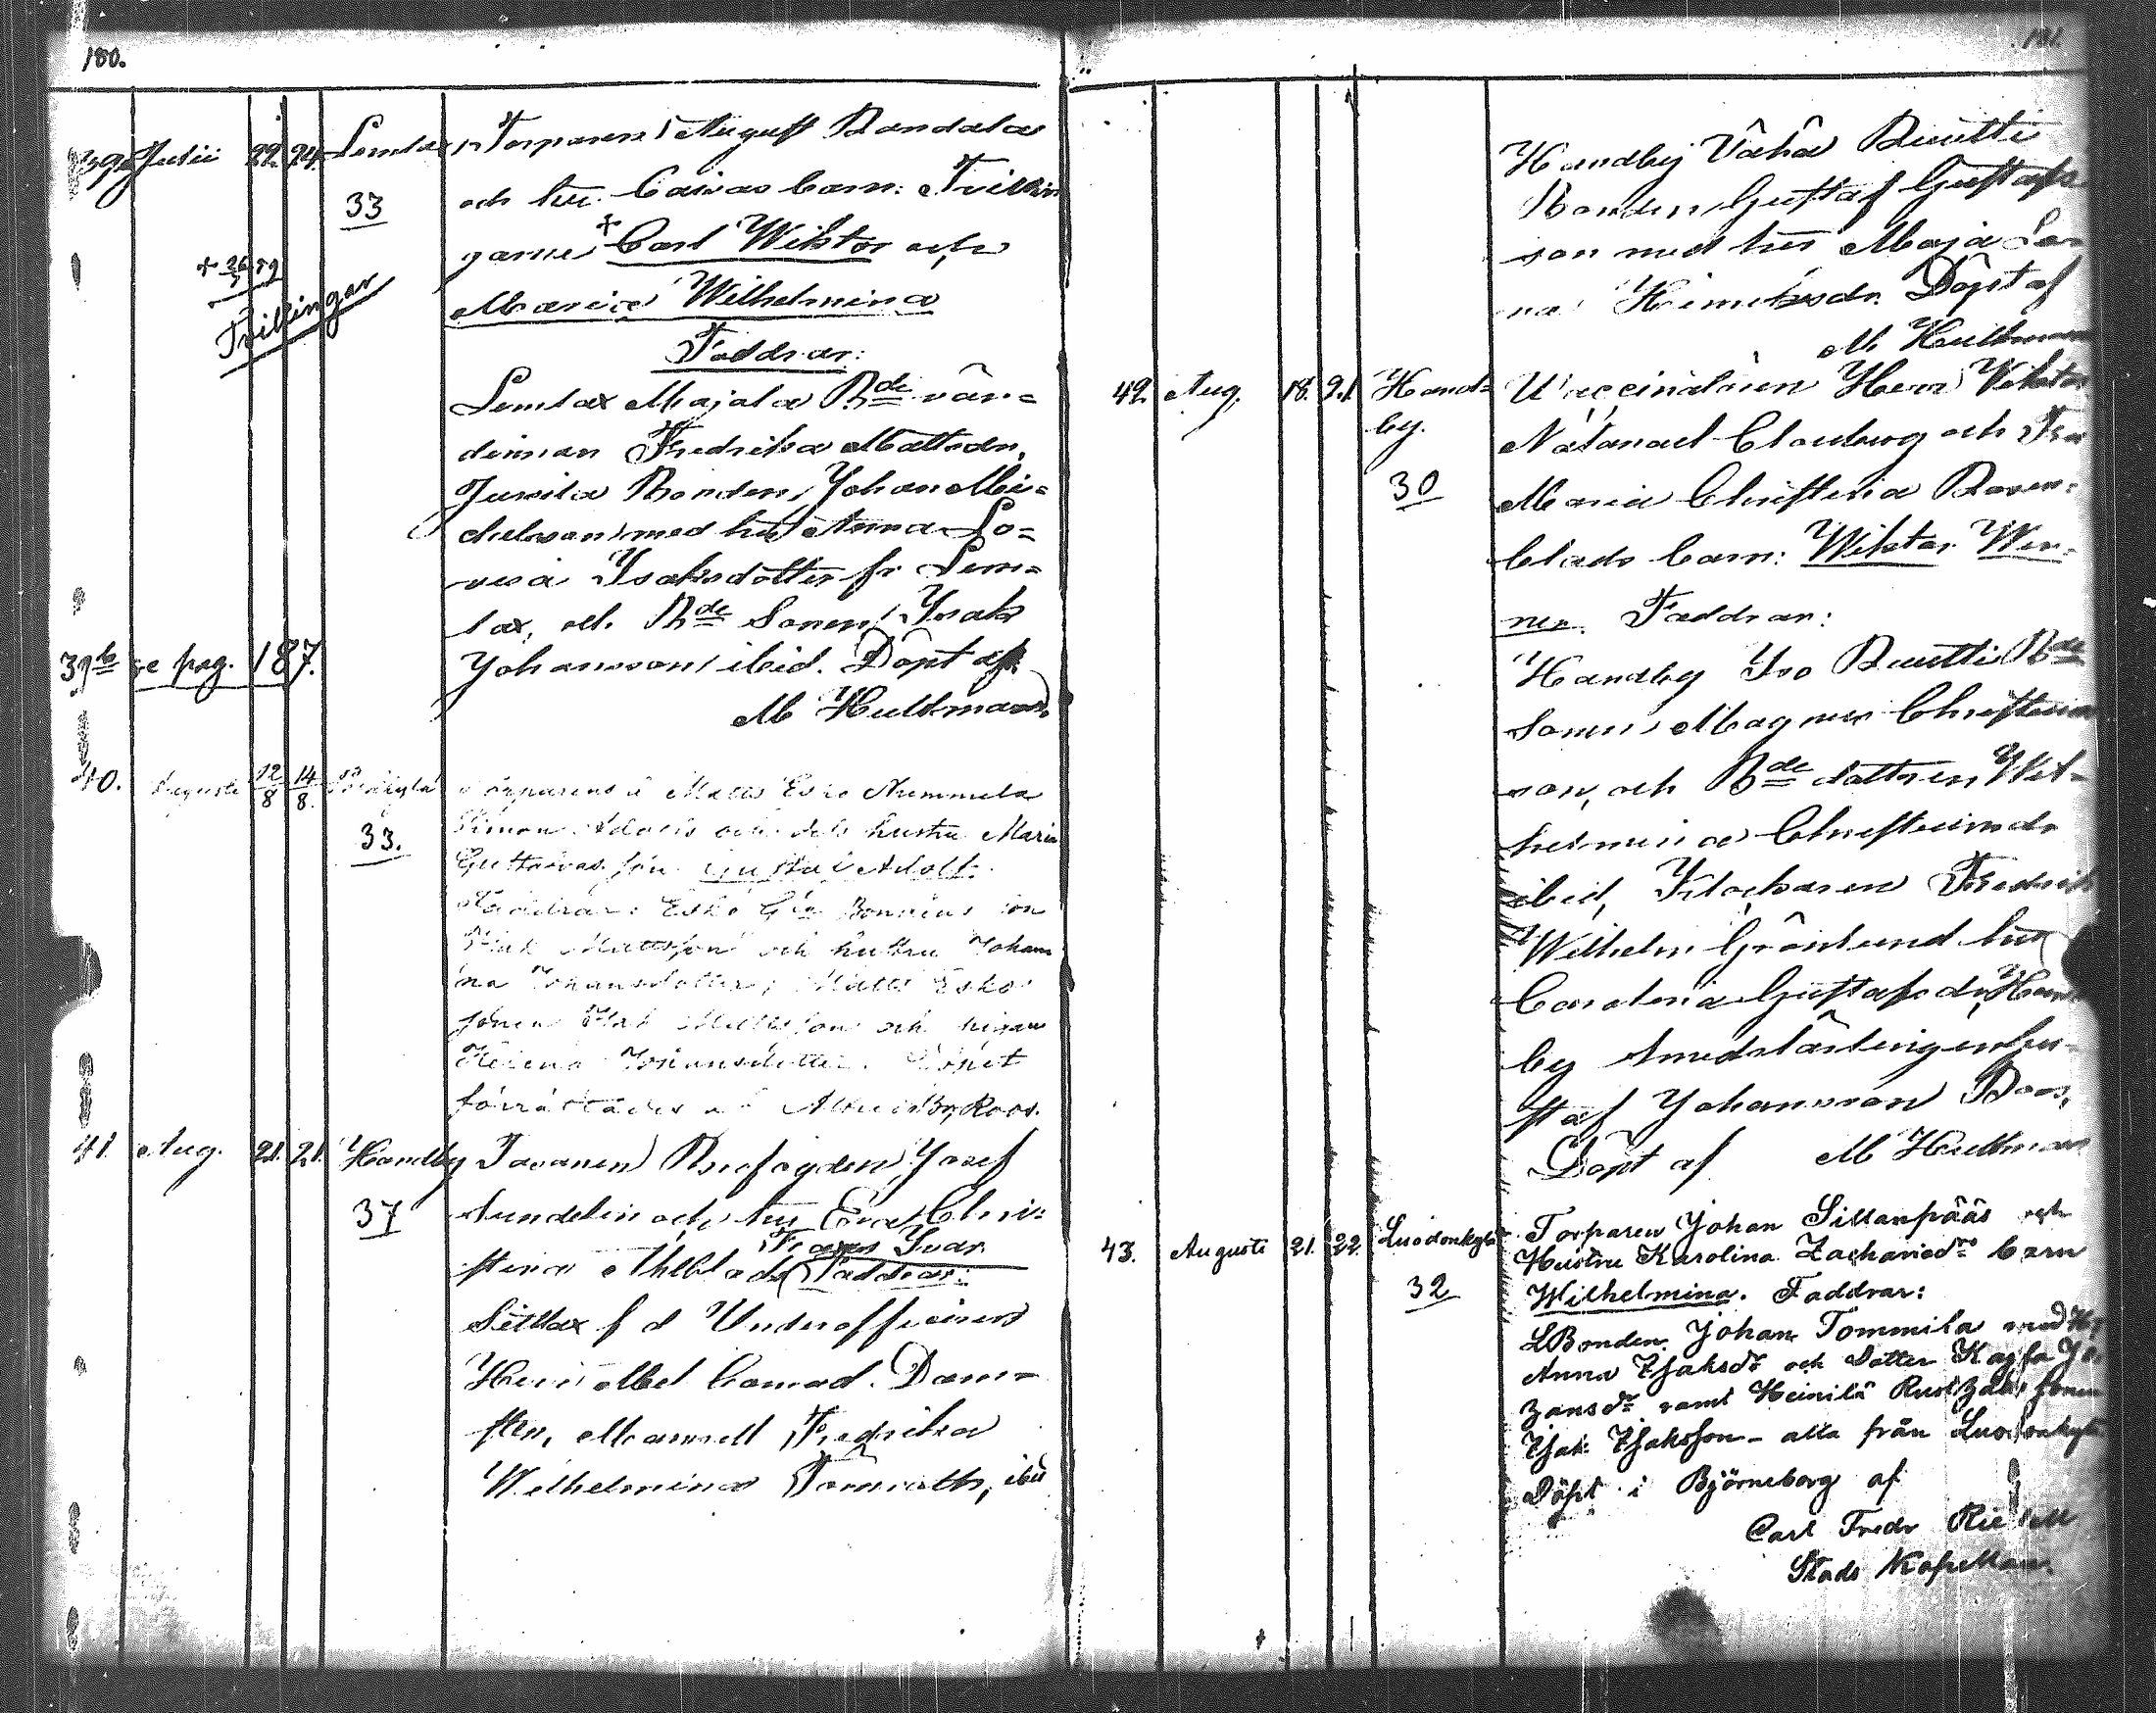 180.
39 Julii 22. 24. Lemlax Torparen August Randala
33 och hu Caisas barn: Trillin
garne Carl Wiktor och
Maria Wilhelmina
Trillingar
Faddrar:
Lemlax Majala Bde vär=
dinnan Fredrika Mattsdr,
Jussila Bonden Johan Mi=
chelsson med hu Anna Lo=
visa Isaksdotter fr Lem=
lax, och Bde Sonen Isak
39b se pag. 187. Johansson ibid. Döpt af
M Hultman
40. Augusti 12/8 14/8
33. Matts Esko Nummela
Simon och hustru Maria
Gustavas son Gustaf Adolf.
Faddrar: Esko Bondens son
Isak Mattsson och hustru Johan
na Johansdotter, Matts Esko
sonen Isak Mattsson och
Helena Johansdotter. Döpet
förrättades af Roos.
41. Aug. 21. 21. Handby Josef
37 Sundelin och hu Eva Chri=
Frans Ivar
stina Ahlblads Faddrar:
Sillax f d Underofficeren
Herr Abel Conrad Dam=
sten, Mamsell Fredrika
Wilhelmina Törnroth, ibid
181.
Handby Vähä Ruutti
Bonden Gustaf Gustafs
son med hu Maja Le
na Hinriksdr. Döpt af
M Hultman
42. Aug. 18. 21. Hand= Vaccinatören Herr Viktor
by. Natanael Clouberg och Fru
30 Maria Christina Rosen=
blads barn: Wiktor Wer=
ner. Faddrar:
Handby Iso Ruutti Bde
Sonen Magnus Christians
son, och Bde dottren Wil=
helmina Christiansdr
ibid, Klockaren Fredrik
Wilhelm Grönlund hu
Carolina Gustafsdr, Hand
by Smedslärlingen Gu=
staf Johansson Roos,
Döpt af M Hultman
43. Augusti 21. 22. Luodonkylä Torparen Johan Sillanpääs och
Hustru Karolina Zachariedrs barn
32 Wilhelmina. Faddrar:
Bonden Johan Tommila med Hu
Anna Isaksdr och Dotter Kajsa Jo
hansdr samt Heinilä Rust sonen
Isak Isaksson - alla från Luodonkylä
Döpt i Björneborg af
Carl Fredr
Stads Kapellan.